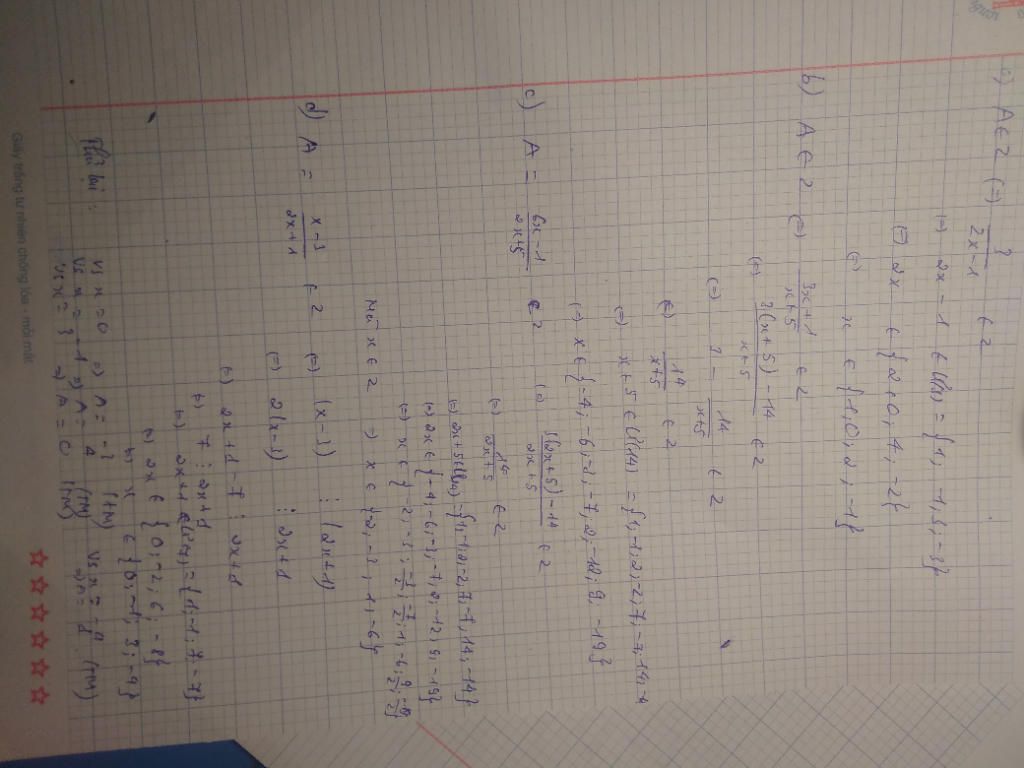 a) A ∈ Z (=) 3/(2x-1) ∈ Z
(=) 2x - 1 ∈ Ư(3) = {1, -1, 3, -3}
(=) 2x ∈ {2, 0, 4, -2}
(=) x ∈ {1, 0, 2, -1}
b) A ∈ Z (=) (3x+1)/(x+5) ∈ Z
(=) (3(x+5)-14)/(x+5) ∈ Z
(=) 3 - 14/(x+5) ∈ Z
(=) 14/(x+5) ∈ Z
(=) x+5 ∈ Ư(14) = {1, -1, 2, -2, 7, -7, 14, -1
(=) x ∈ {-4, -6, -3, -7, 2, -12, 9, -19}
c) A = (6x-1)/(2x+5) ∈ Z (=) (3(2x+5)-14)/(2x+5) ∈ Z
(=) 14/(2x+5) ∈ Z
(=) 2x+5 ∈ Ư(14) = {1, -1, 2, -2, 7, -7, 14, -14}
(=) 2x ∈ {-4, -6, -3, -7, 2, -12, 9, -19}
(=) x ∈ {-2, -3, -3/2, -7/2, 1, -6, 9/2, -19/2}
Mà x ∈ Z => x ∈ {-2, -3, 1, -6}
d) A = (x-3)/(2x+1) ∈ Z (=) (x-3) ⋮ (2x+1)
(=) 2(x-3) ⋮ 2x+1
(=) 2x+1-7 ⋮ 2x+1
(=) 7 ⋮ 2x+1
(=) 2x+1 ∈ Ư(7) = {1, -1, 7, -7}
(=) 2x ∈ {0, -2, 6, -8}
(=) x ∈ {0, -1, 3, -4}
Vs x = 0 => A = -3 (TM)
Vs x = -1 => A = 4 (TM)
Vs x = 3 => A = 0 (TM)
Vs x = -4 => A = 1 (TM)
Giấy trắng tự nhiên chống lóa - mỏi mắt